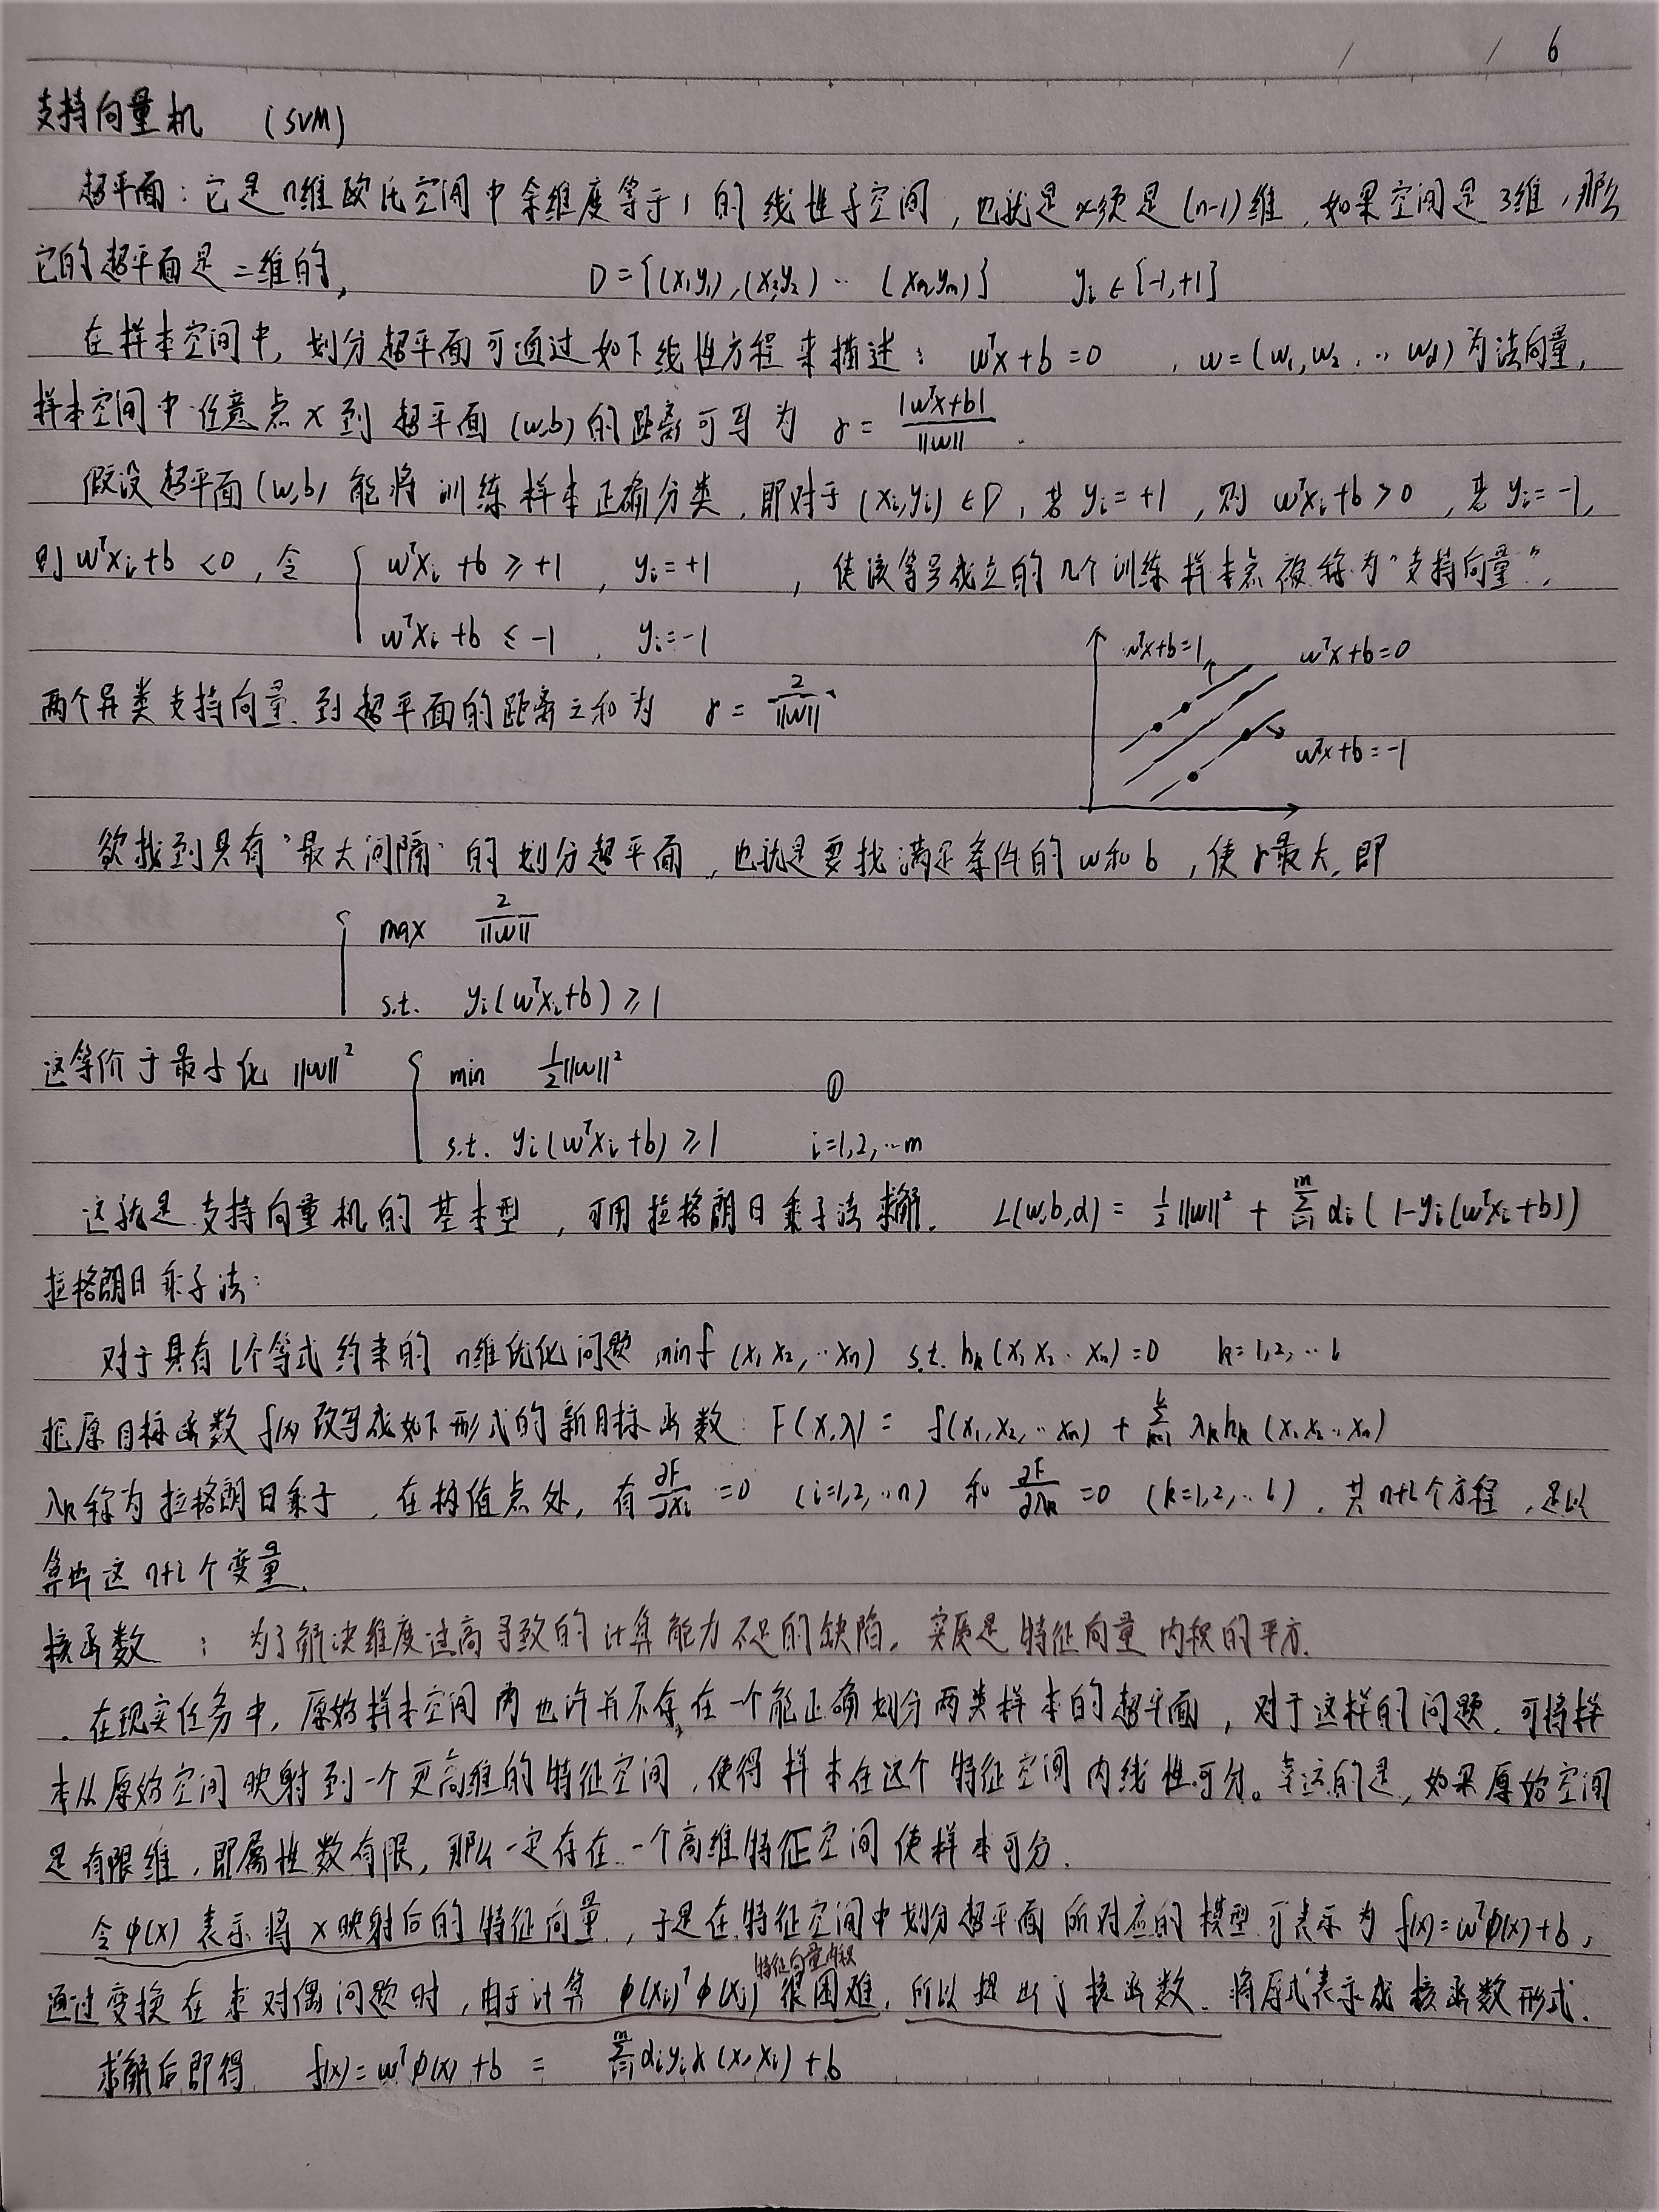 6
支持向量机 (SVM)
超平面：它是n维欧氏空间中余维度等于1的线性子空间，也就是必须是(n-1)维，如果空间是3维，那么
它的超平面是二维的，  D={(x₁y₁),(x₂y₂)··(xₘyₘ)}  yᵢ∈{-1,+1}
在样本空间中，划分超平面可通过如下线性方程来描述：wᵀx+b=0 ，w=(w₁,w₂,··w_d)为法向量，
样本空间中任意点x到超平面(w,b)的距离可写为 γ=|wᵀx+b|/||w||．
假设超平面(w,b)能将训练样本正确分类，即对于(xᵢ,yᵢ)∈D，若yᵢ=+1，则 wᵀxᵢ+b>0，若yᵢ=-1，
则wᵀxᵢ+b<0，令 { wᵀxᵢ+b≥+1，yᵢ=+1 ，使该等号成立的几个训练样本点被称为“支持向量”，
wᵀxᵢ+b≤-1，yᵢ=-1
wᵀx+b=1 wᵀx+b=0
两个异类支持向量到超平面的距离之和为 γ=2/||w||
wᵀx+b=-1
欲找到具有“最大间隔”的划分超平面，也就是要找满足条件的w和b，使γ最大，即
{ max 2/||w||
s.t. yᵢ(wᵀxᵢ+b)≥1
这等价于最小化||w||² { min ½||w||² ①
s.t. yᵢ(wᵀxᵢ+b)≥1 i=1,2,··m
这就是支持向量机的基本型，可用拉格朗日乘子法求解． L(w,b,α)=½||w||²+∑ᵢ₌₁ᵐ αᵢ(1-yᵢ(wᵀxᵢ+b))
拉格朗日乘子法：
对于具有l个等式约束的n维优化问题 min f(x₁x₂,··xₙ) s.t. hₖ(x₁x₂··xₙ)=0 k=1,2,··l
把原目标函数f(x)改写成如下形式的新目标函数：F(x,λ)=f(x₁,x₂,··xₙ)+∑ₖ₌₁ λₖhₖ(x₁x₂··xₙ)
λₖ称为拉格朗日乘子，在极值点处，有∂F/∂xᵢ=0 (i=1,2,··n) 和 ∂F/∂λₖ=0 (k=1,2,··l)，共n+l个方程，足以
算出这n+l个变量．
核函数：为了解决维度过高导致的计算能力不足的缺陷，实质是特征向量内积的平方．
在现实任务中，原始样本空间内也许并不存在一个能正确划分两类样本的超平面，对于这样的问题，可将样
本从原始空间映射到一个更高维的特征空间，使得样本在这个特征空间内线性可分。幸运的是，如果原始空间
是有限维，即属性数有限，那么一定存在一个高维特征空间使样本可分．
令φ(x)表示将x映射后的特征向量，于是在特征空间中划分超平面所对应的模型可表示为f(x)=wᵀφ(x)+b，
特征向量内积
通过变换在求对偶问题时，由于计算φ(xᵢ)ᵀφ(xⱼ)很困难，所以提出了核函数．将原式表示成核函数形式．
求解后即得 f(x)=wᵀφ(x)+b=∑ᵢ₌₁ᵐ αᵢyᵢκ(x,xᵢ)+b